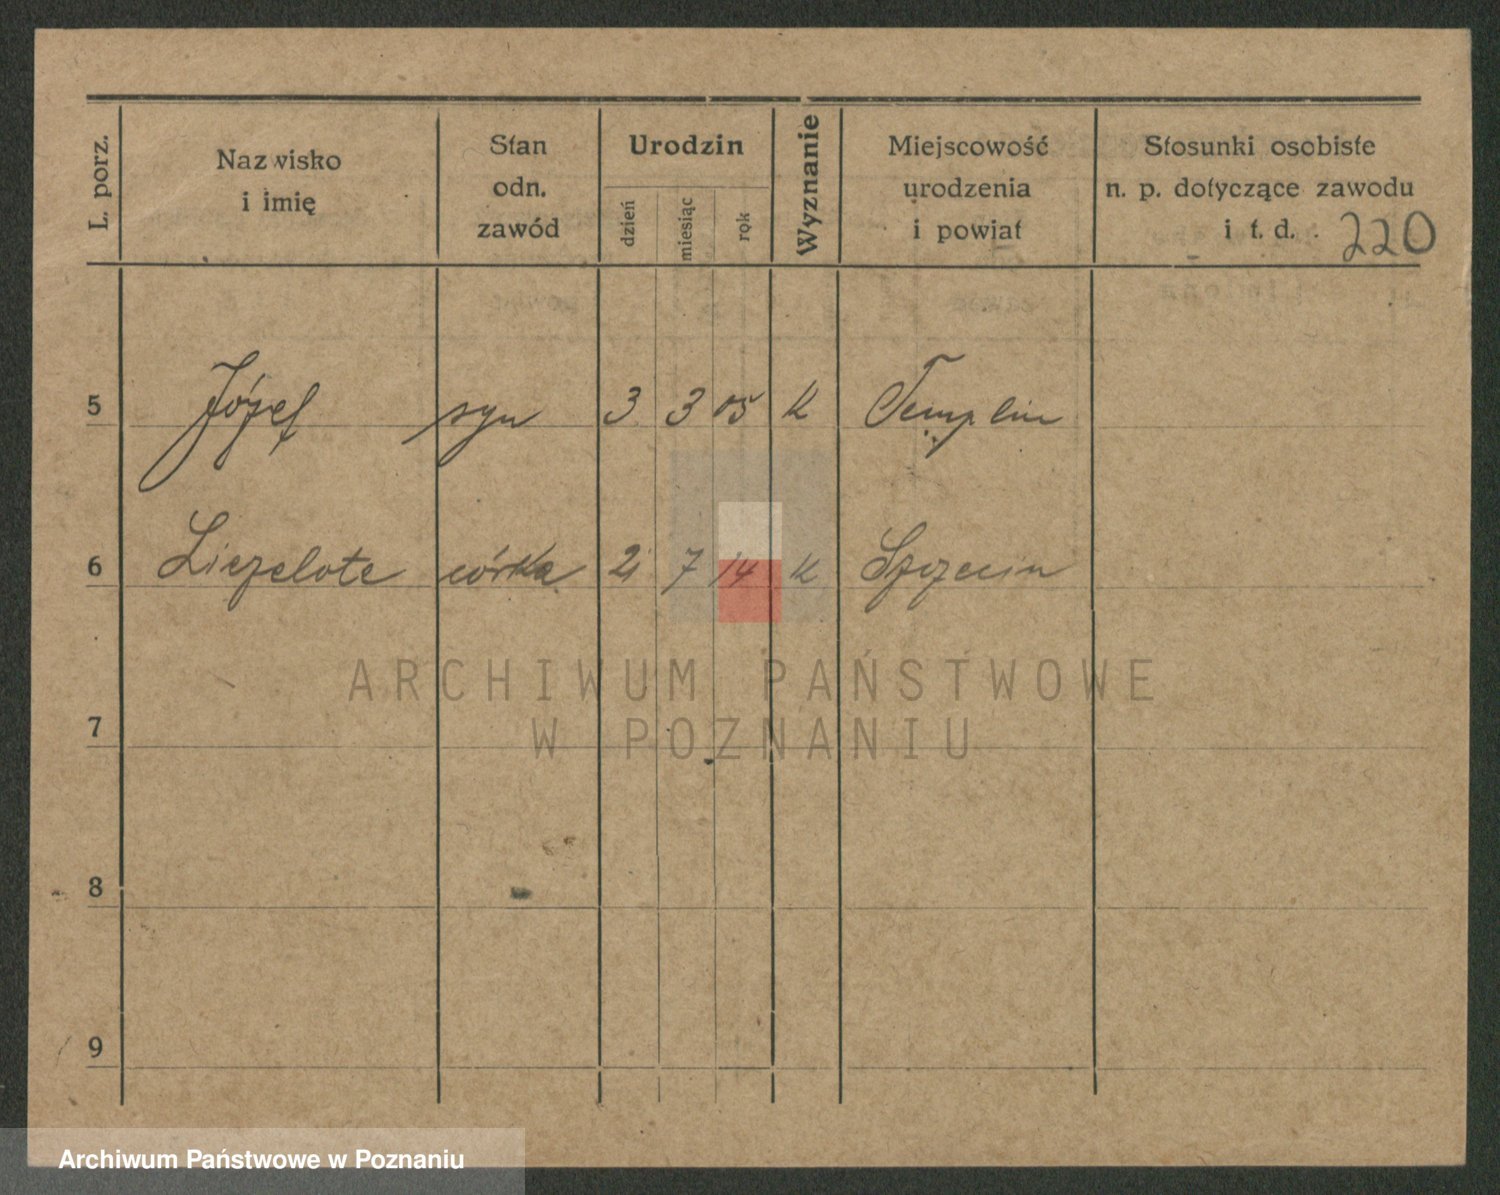 L. porz.
Nazwisko
i imię
Stan
odn.
zawód
Urodzin
dzień
miesiąc
rok
Wyznanie
Miejscowość
urodzenia
i powiat
Stosunki osobiste
n. p. dotyczące zawodu
i t. d. . 220
5 Józef syn 3 3 05 k Templin
6 Liezelote córka 2 7 14 k Szczecin
7
8
9
ARCHIWUM PAŃSTWOWE
W POZNANIU
Archiwum Państwowe w Poznaniu